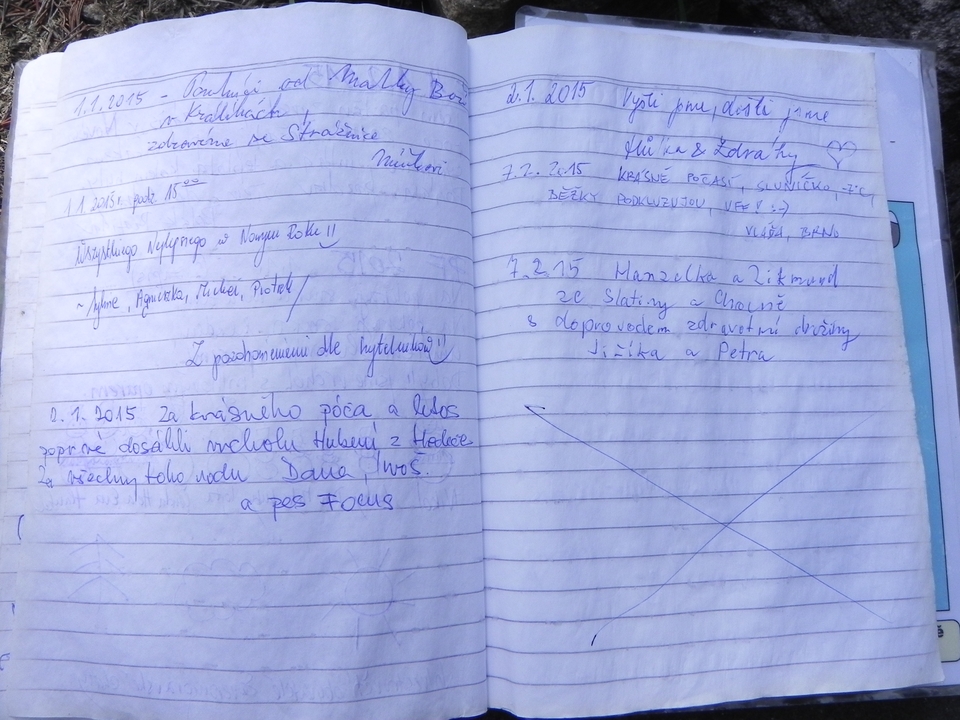 1.1.2015 - od Matky Boží
v Králíkách,
zdravíme ze Strážnice
1.1.2015r. godz. 15⁰⁰
Wszystkiego Najlepszego w Nowym Roku !!
Agnieszka, Michał, Piotrek
Z pozdrowieniami dla
2.1.2015 Za krásného póča a letos
poprvé dosáhli vrcholu Hubení z Hedeče
Za všechny toho rodu Dana, Iwoš.
a pes FOCUS
2.1.2015 Vyšli jsme, došli jsme
& Ždráhy ♡
7.2.2015 KRÁSNÉ POČASÍ, SLUNÍČKO, -7°C,
BĚŽKY PODKLUZUJOU, UFF! :-)
VLÁĎA, BRNO
7.2.15 Hanzelka a Zikmund
ze Slatiny a Chocně
s doprovodem zdravotní družiny
Jiříka a Petra